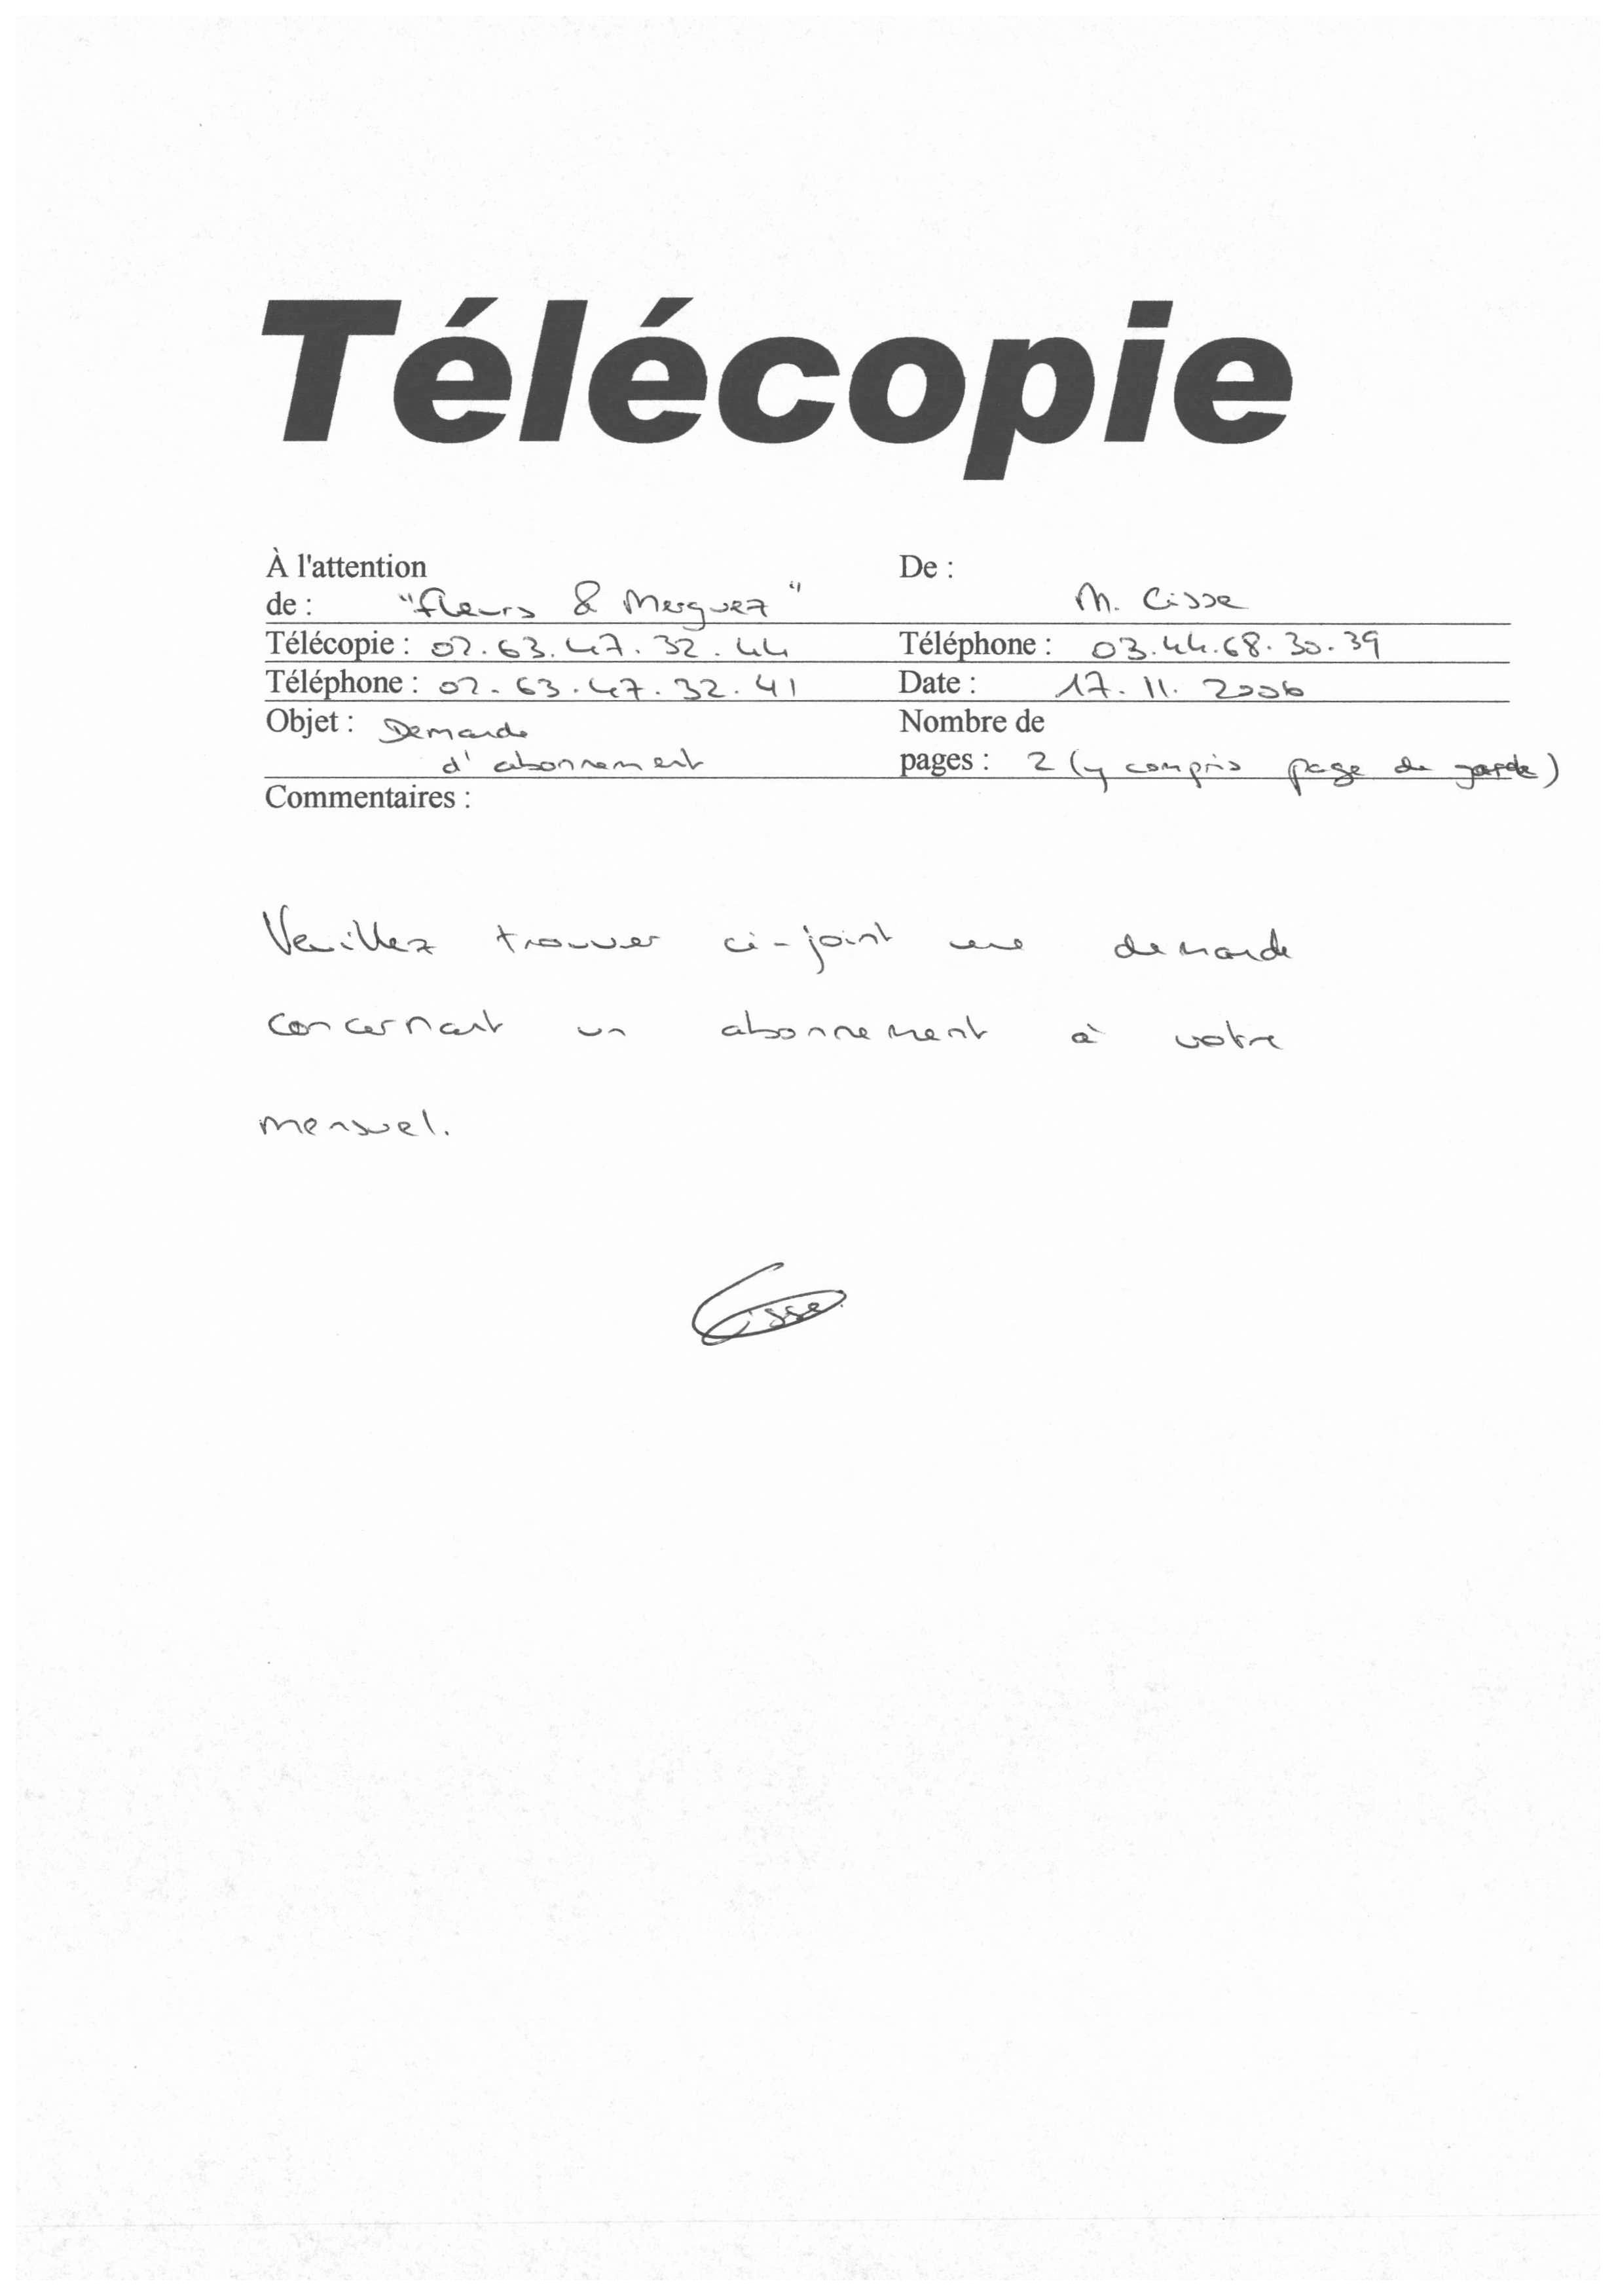 Télécopie
À l'attention De :
de : "fleurs & Merguez" M. Cisse
Télécopie : 02.63.47.32.44 Téléphone : 03.44.68.30.39
Téléphone : 02.63.47.32.41 Date : 17.11.2006
Objet : Demande Nombre de
d'abonnement pages : 2 (y compris page de garde)
Commentaires :
Veuillez trouver ci-joint une demande
concernant un abonnement à votre
mensuel.
Cisse